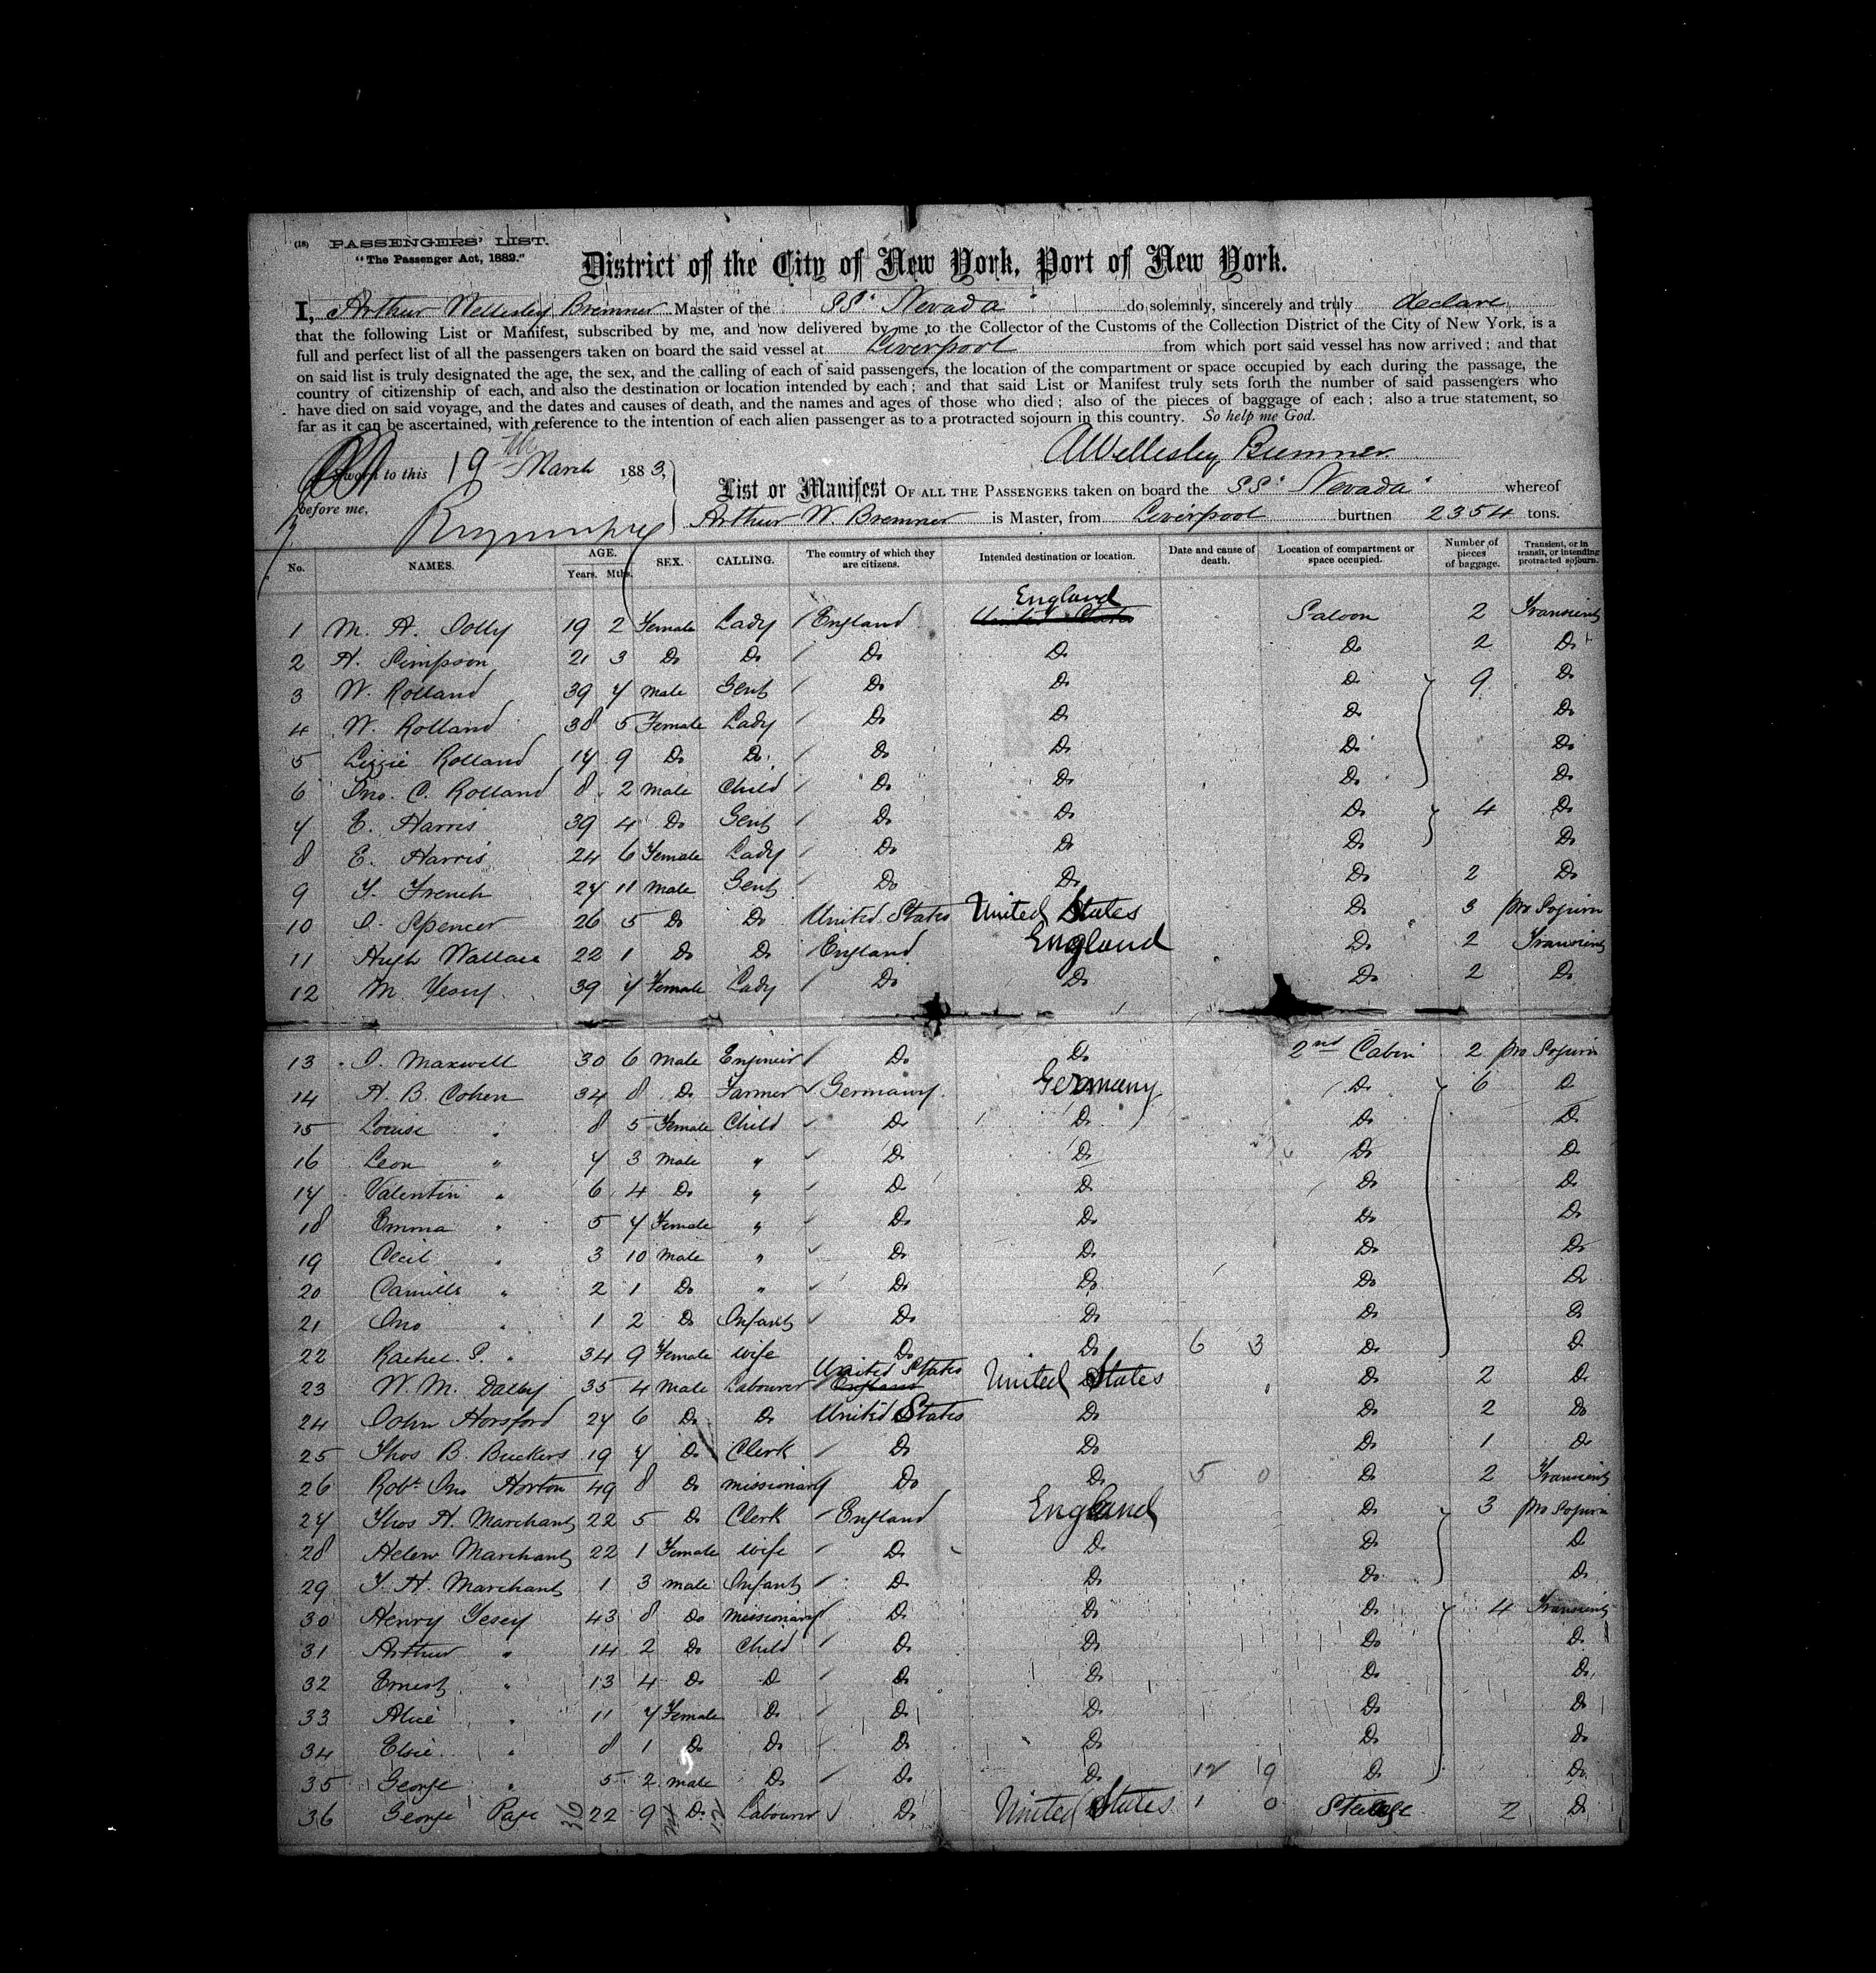 (18) PASSENGERS' LIST.
"The Passenger Act, 1882."
District of the City of New York, Port of New York.
I, Arthur Wellesley Bremner Master of the SS. Nevada do solemnly, sincerely and truly declare
that the following List or Manifest, subscribed by me, and now delivered by me to the Collector of the Customs of the Collection District of the City of New York, is a
full and perfect list of all the passengers taken on board the said vessel at Liverpool from which port said vessel has now arrived; and that
on said list is truly designated the age, the sex, and the calling of each of said passengers, the location of the compartment or space occupied by each during the passage, the
country of citizenship of each, and also the destination or location intended by each; and that said List or Manifest truly sets forth the number of said passengers who
have died on said voyage, and the dates and causes of death, and the names and ages of those who died; also of the pieces of baggage of each; also a true statement, so
far as it can be ascertained, with reference to the intention of each alien passenger as to a protracted sojourn in this country. So help me God.
AWellesley Bremner
Sworn to this 19th March 1883,
before me,
List or Manifest OF ALL THE PASSENGERS taken on board the SS. Nevada whereof
Arthur W. Bremner is Master, from Liverpool burthen 2354 tons.
No. NAMES. AGE. Years. Mths. SEX. CALLING. The country of which they are citizens. Intended destination or location. Date and cause of death. Location of compartment or space occupied. Number of pieces of baggage. Transient, or in transit, or intending protracted sojourn.
England
1 M. A. Jolly 19 2 Female Lady England United States Saloon 2 Transient
2 H. Simpson 21 3 Do Do Do Do Do 2 Do
3 W. Rolland 39 7 male Gent Do Do Do 9 Do
4 W. Rolland 38 5 Female Lady Do Do Do Do
5 Lizzie Rolland 17 9 Do Do Do Do Do Do
6 Jno. C. Rolland 8 2 male Child Do Do Do Do
7 E. Harris 39 4 Do Gent Do Do Do 4 Do
8 E. Harris 24 6 Female Lady Do Do Do Do
9 T. French 27 11 male Gent Do Do Do 2 Do
10 J. Spencer 26 5 Do Do United States United States Do 3 pro Sojurn
11 Hugh Wallace 22 1 Do Do England England Do 2 Transient
12 M Yesey 39 7 Female Lady Do Do Do 2 Do
13 J. Maxwell 30 6 male Engineir Do Do 2nd Cabin 2 pro Sojurn
14 A. B. Cohen 34 8 Do Farmer Germany Germany Do 6 Do
15 Louise " 8 5 Female Child Do Do Do Do
16 Leon " 7 3 male " Do Do Do Do
17 Valentin " 6 4 Do " Do Do Do Do
18 Emma " 5 7 Female " Do Do Do Do
19 Cecil " 3 10 male " Do Do Do Do
20 Camille " 2 1 Do " Do Do Do Do
21 Jno " 1 2 Do Infant Do Do Do Do
22 Rachel. S. " 34 9 Female wife Do Do 6 3 Do Do
United States
23 W. M. Dalby 35 4 male Labourer England United States Do 2 Do
24 John Horsford 27 6 Do Do United States Do Do 2 Do
25 Thos B. Buckers 19 7 Do Clerk Do Do Do 1 Do
26 Robt Jno Horton 49 8 Do missionary Do Do 5 0 Do 2 Transient
27 Thos H. Marchant 22 5 Do Clerk England England Do 3 pro Sojurn
28 Helen Marchant 22 1 Female wife Do Do Do Do
29 T. H. Marchant 1 3 male Infant Do Do Do Do
30 Henry Yesey 43 8 Do missionary Do Do Do 4 Transient
31 Arthur " 14 2 Do Child Do Do Do Do
32 Ernest " 13 4 Do Do Do Do Do Do
33 Alice " 11 7 Female Do Do Do Do Do
34 Elsie " 8 1 Do Do Do Do Do Do
35 George " 5 2 male Do Do Do 12 9 Do Do
36 George Page 22 9 Do Labourer Do United States 1 0 Steerage 2 Do
36